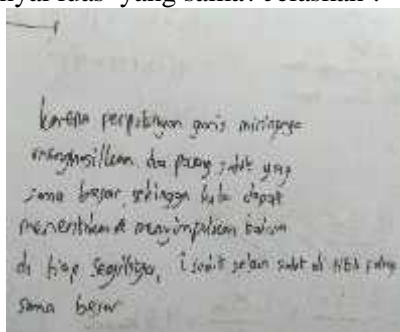 nyai luas yang sama? Jelaskan !
karena perpotongan garis miringnya
menghasilkan dua pasang sudut yang
sama besar, sehingga kita dapat
menentukan & menyimpulkan bahwa
di tiap segitiga, 1 sudut selain sudut di titik potong
sama besar